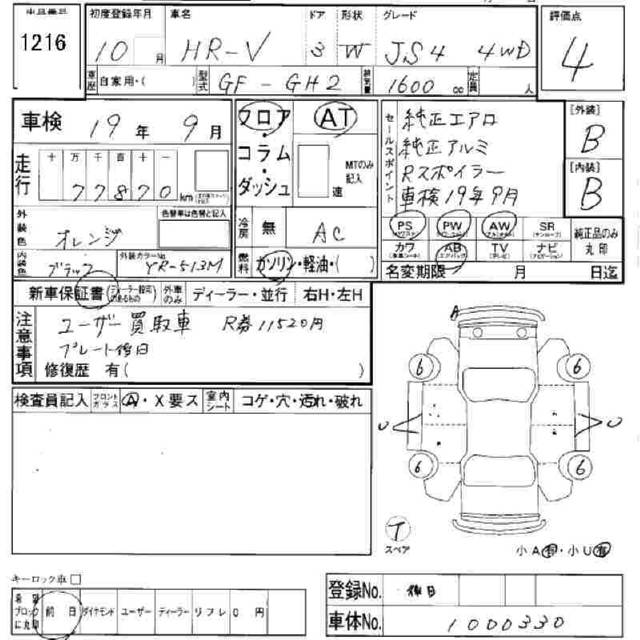 出品番号 初度登録年月 車名 ドア 形状 グレード 評価点
1216 10 月 HR-V 3 W JS4 4WD 4
車歴 自家用・( ) 型式 GF-GH2 排気量 1600 cc 定員 人
車検 19 年 9 月
走行 十 万 千 百 十 一
77870 km
外装色 オレンジ 色替車は色替と記入
内装色 ブラック 外装カラーNo. YR-513M
フロア・コラム・ダッシュ AT
MTのみ記入 速
冷房 無 AC
燃料 ガソリン・軽油・( )
セールスポイント
純正エアロ
純正アルミ
Rスポイラー
車検19年9月
[外装]
B
[内装]
B
PS PW AW SR 純正品のみ丸印
カワ AB TV ナビ
名変期限 月 日迄
新車保証書 ディーラー・並行 右H・左H
外車のみ
注意事項
ユーザー買取車 R券11520円
プレート後日
修復歴 有( )
検査員記入 フロントガラス A・X要ス 室内シート コゲ・穴・汚れ・破れ
A
6 6
U U
6 6
T
スペア
小A有・小U有
キーロック車 □
希望ブロックに丸印 前日 ダイヤモンド ユーザー ディーラー リフレ 0円
登録No. 後日
車体No. 1000330